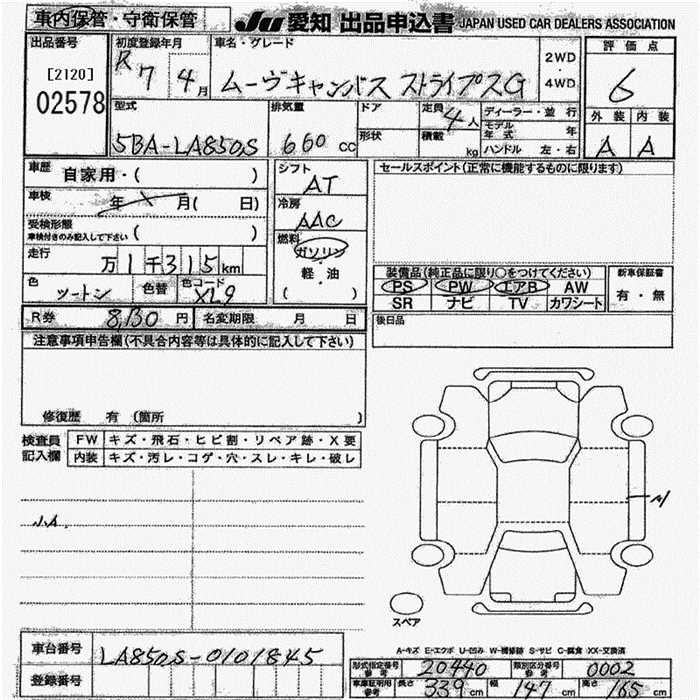 車内保管・守衛保管
JU 愛知 出品申込書 JAPAN USED CAR DEALERS ASSOCIATION
出品番号
[2120]
02578
初度登録年月
R 7 4月
車名・グレード
ムーヴキャンバス ストライプスG
2WD
・
4WD
評価点
6
外装 内装
A A
型式
5BA-LA850S
排気量
660 cc
ドア
形状
定員
4人
積載
kg
ディーラー・並行
モデル年式 年
ハンドル 左・右
車歴
自家用・( )
車検
年 月( 日)
受検形態
車検付きのみ記入して下さい ( )
走行
万1千315km
色
ツートン
色替
色コード
XL9
シフト
AT
冷房
AAC
燃料
ガソリン
・
軽・油
( )
セールスポイント(正常に機能するものに限ります)
装備品(純正品に限り○をつけてください)
PS PW エアB AW
SR ナビ TV カワシート
新車保証書
有・無
R券 8,130円 名変期限 月 日
後日品
注意事項申告欄(不具合内容等は具体的に記入して下さい)
修復歴 有(箇所 )
検査員記入欄
FW キズ・飛石・ヒビ割・リペア跡・X要
内装 キズ・汚レ・コゲ・穴・スレ・キレ・破レ
スペア
A-キズ E-エクボ U-凹み W-補修跡 S-サビ C-腐食 XX-交換済
車台番号 LA850S-0101845
登録番号
型式指定番号参考 20440 類別区分番号参考 0002
車庫証明用参考 長さ 339cm 幅 147cm 高さ 165cm